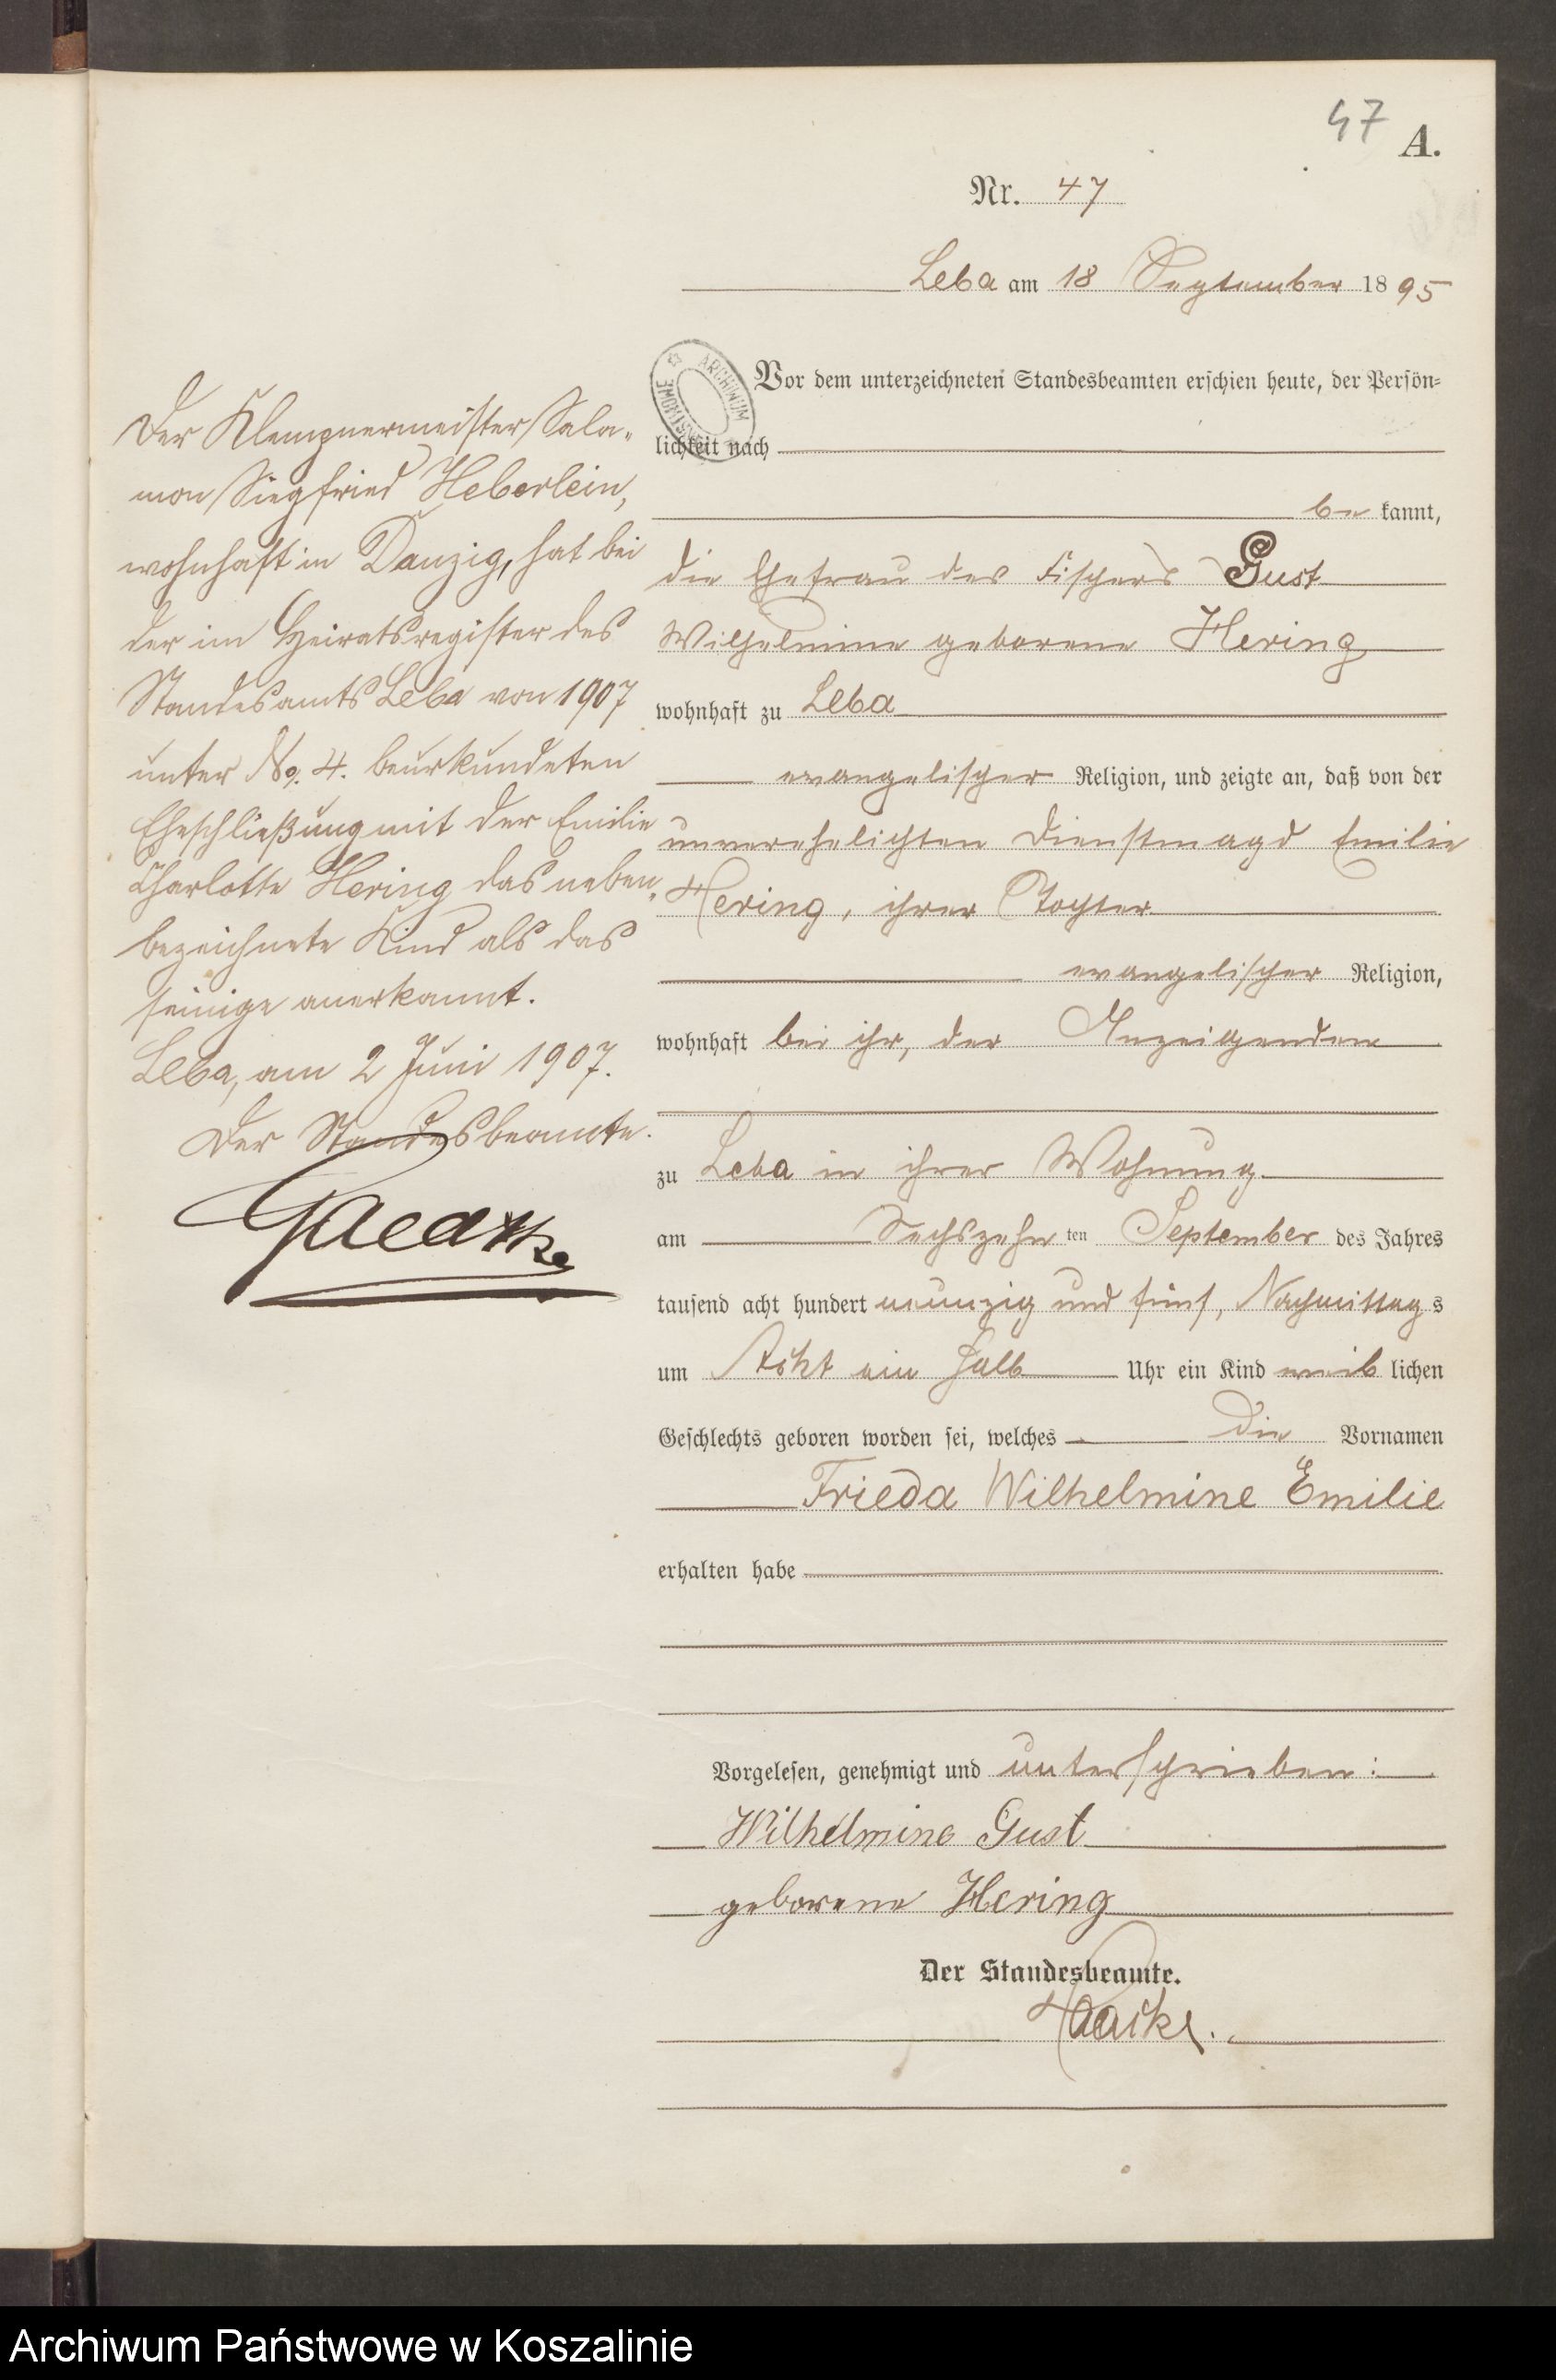 47
A.
Nr. 47
Leba am 18 September 1895
ARCHIWUM
Vor dem unterzeichneten Standesbeamten erschien heute, der Persön-
lichkeit nach
be kannt,
die Ehefrau des Fischers Gust
Wilhelmine geborene Hering
wohnhaft zu Leba
evangelischer Religion, und zeigte an, daß von der
unverehelichten Dienstmagd Emilie
Hering, ihrer Tochter
evangelischer Religion,
wohnhaft bei ihr, der Anzeigenden
zu Leba in ihrer Wohnung
am Sechszehn ten September des Jahres
tausend acht hundert neunzig und fünf, Nachmittag s
um Acht ein halb Uhr ein Kind weib lichen
Geschlechts geboren worden sei, welches die Vornamen
Frieda Wilhelmine Emilie
erhalten habe
Vorgelesen, genehmigt und unterschrieben:
Wilhelmine Gust
geborene Hering
Der Standesbeamte.
Der Klempnermeister Salo-
mon Siegfried Heberlein,
wohnhaft in Danzig, hat bei
der im Heiratsregister des
Standesamts Leba von 1907
unter No. 4. beurkundeten
Eheschließung mit der Emilie
Charlotte Hering das neben-
bezeichnete Kind als das
seinige anerkannt.
Leba, am 2 Juni 1907.
Der Standesbeamte.
Archiwum Państwowe w Koszalinie